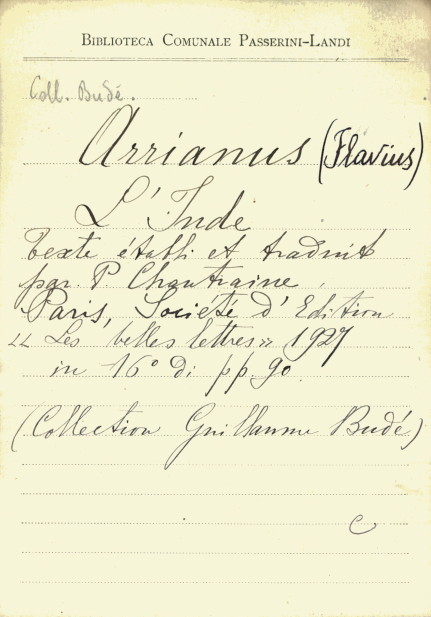 BIBLIOTECA COMUNALE PASSERINI-LANDI
Coll. Budé.
Arrianus (Flavius)
L'Inde
Texte établi et traduit
par P Chantraine,
Paris, Société d'Edition
"Les belles lettres" 1927
in 16° di pp. 90
(Collection Guillaume Budé)
C